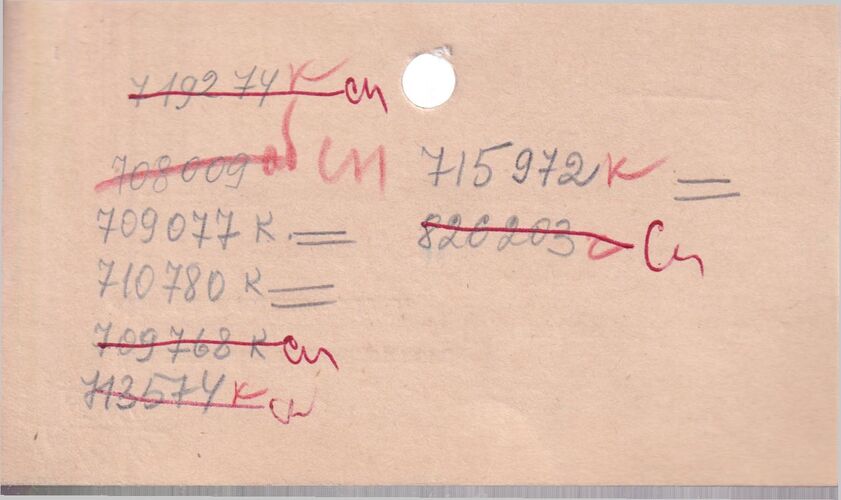 719274 к сп
708009 об сп
709077 к =
710780 к =
709768 к сп
713574 к сп
715972 к =
820203 с Сп